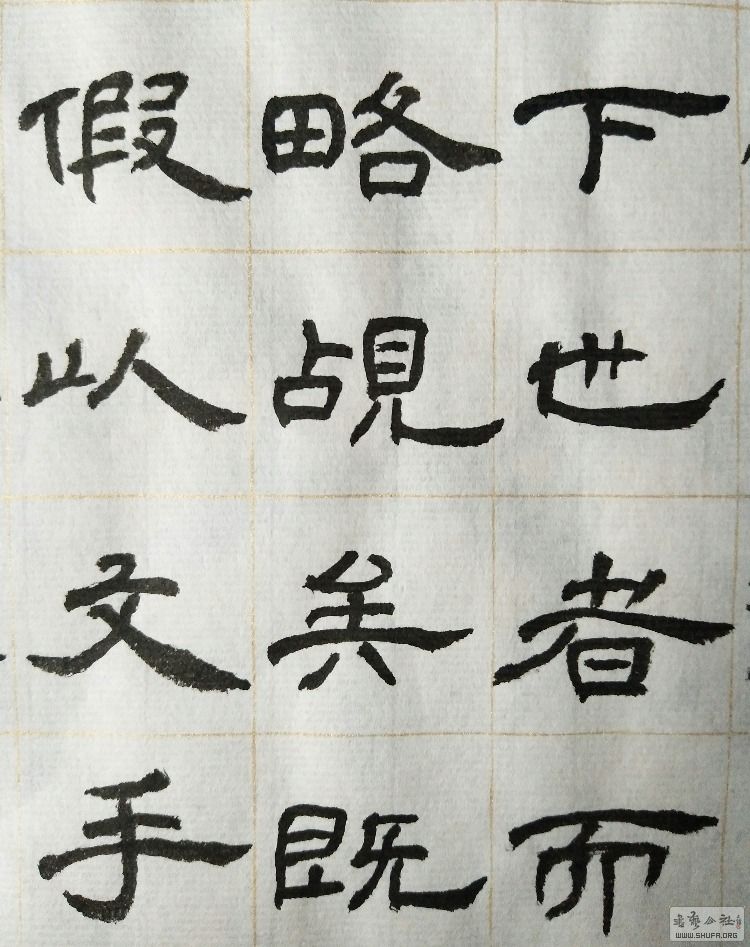 下也者而
略觇矣既
假以文手
书艺公社
WWW.SHUFA.ORG